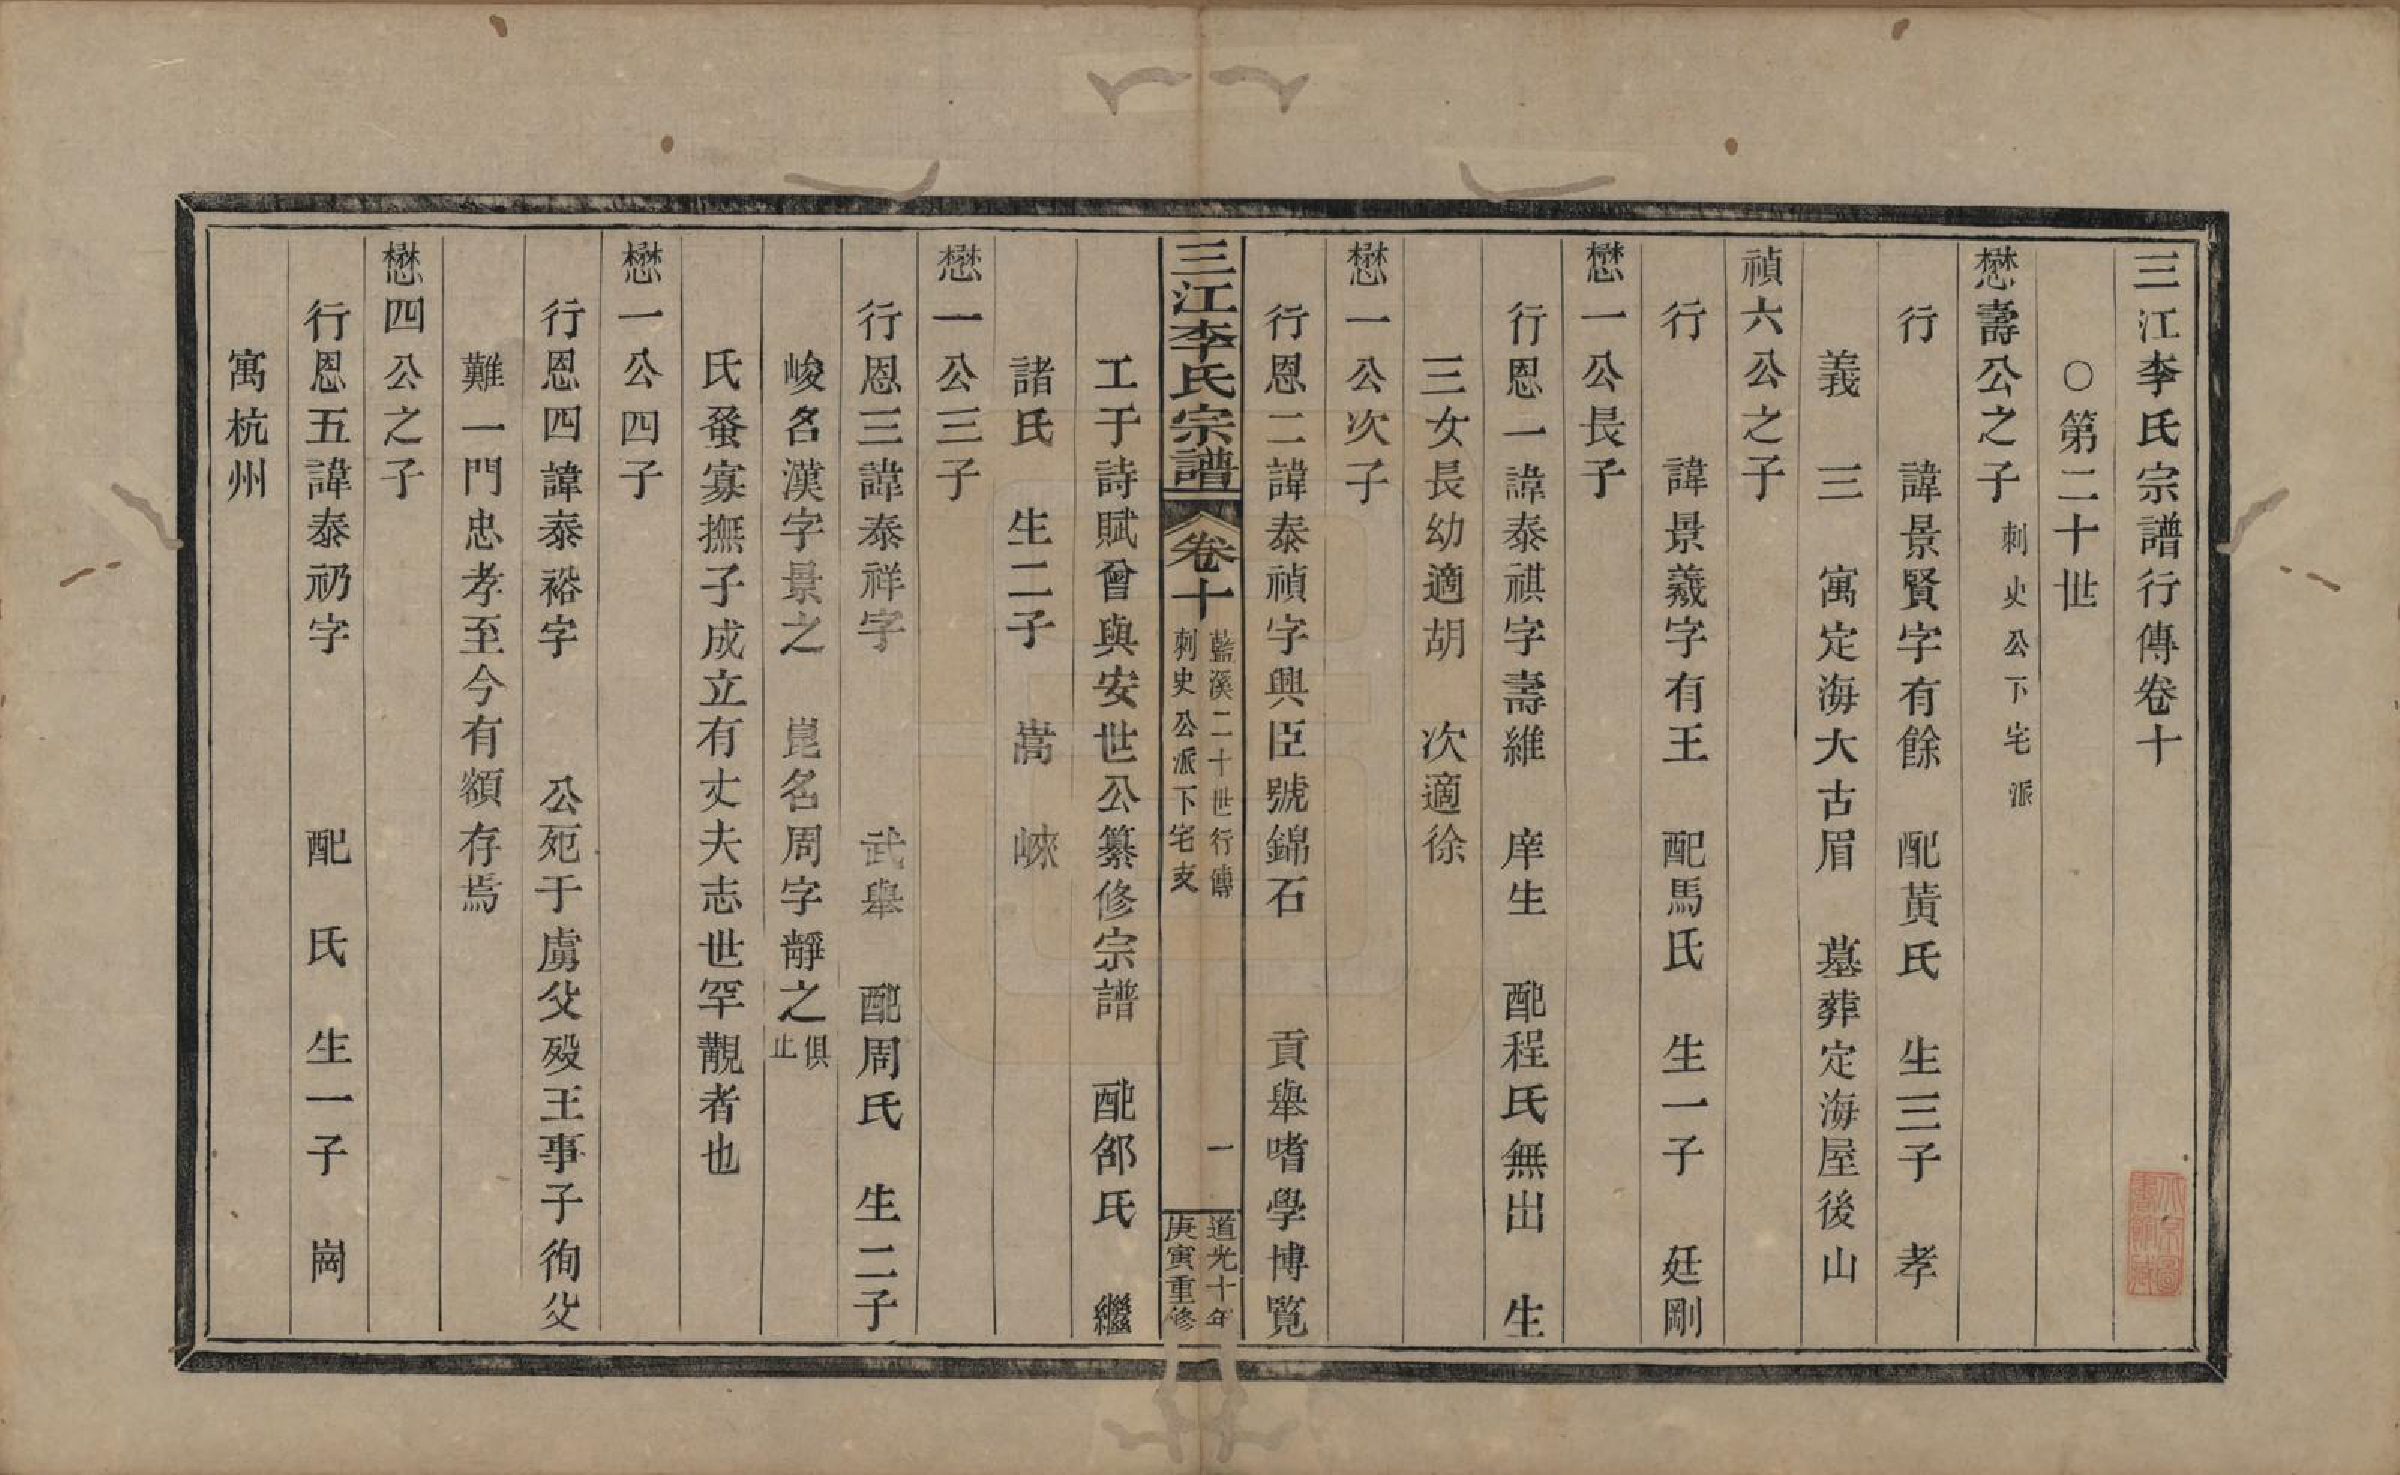 三江李氏宗譜行傳卷十
○第二十世
懋壽公之子刺史公下宅派
行　諱景賢字有餘　配黃氏　生三子　孝
義　三　寓定海大古眉　墓葬定海屋後山
禎六公之子
行　諱景羲字有王　配馬氏　生一子　廷剛
懋一公長子
行恩一諱泰祺字壽維　庠生　配程氏無出　生
三女長幼適胡　次適徐
懋一公次子
行恩二諱泰禎字興臣號錦石　貢舉嗜學博覧
三江李氏宗譜　卷十　藍溪二十世行傳
刺史公派下宅支　一　道光十年
庚寅重修
工于詩賦曾與安世公纂修宗譜　配邰氏　繼
諸氏　生二子　嵩　崍
懋一公三子
行恩三諱泰祥字　武舉　配周氏　生二子
峻名漢字景之　崑名周字靜之俱止
氏蚤寡撫子成立有丈夫志世罕覯者也
懋一公四子
行恩四諱泰裕字　公死于虜父殁王事子徇父
難一門忠孝至今有額存焉
懋四公之子
行恩五諱泰礽字　配　氏　生一子　崗
寓杭州